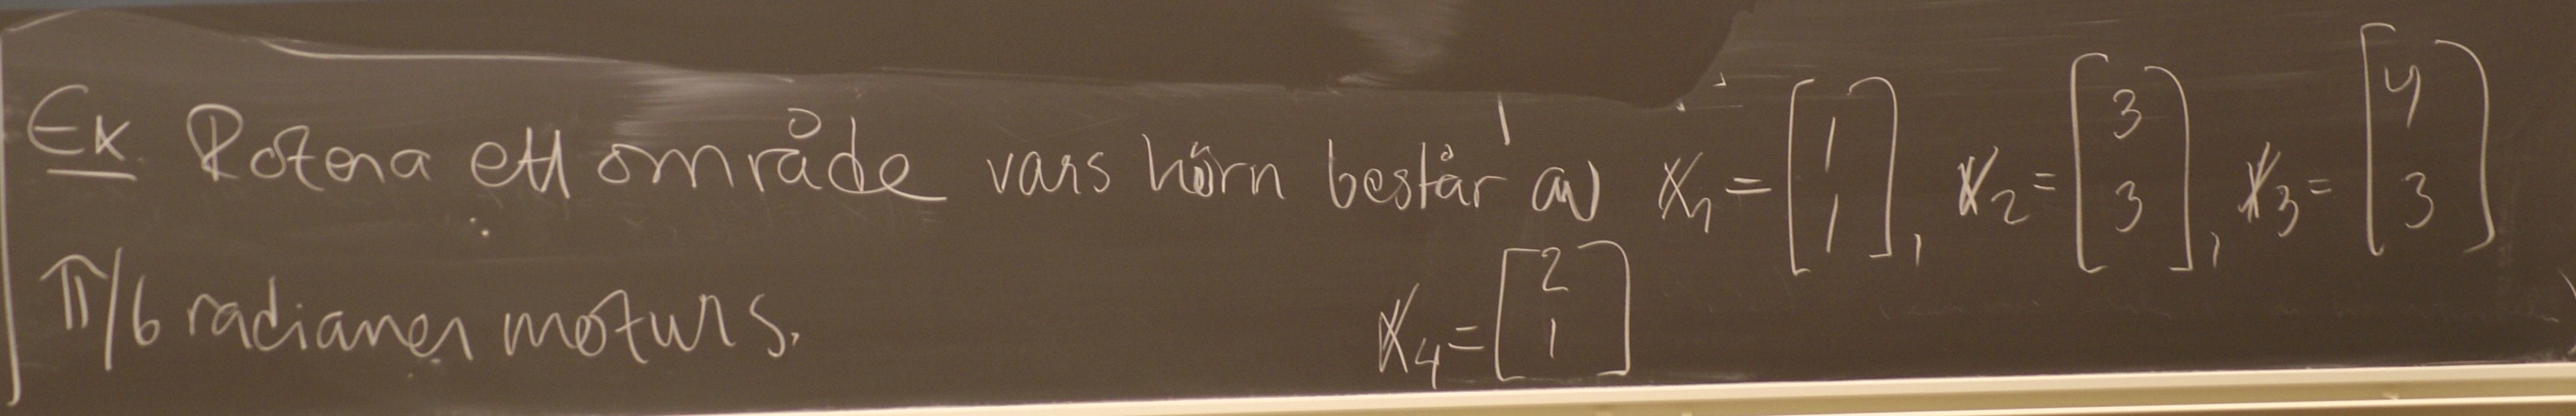 Ex. Rotera ett område vars hörn består av x₁ = [1 1], x₂ = [3 3], x₃ = [4 3]
π/6 radianer moturs. x₄ = [2 1]